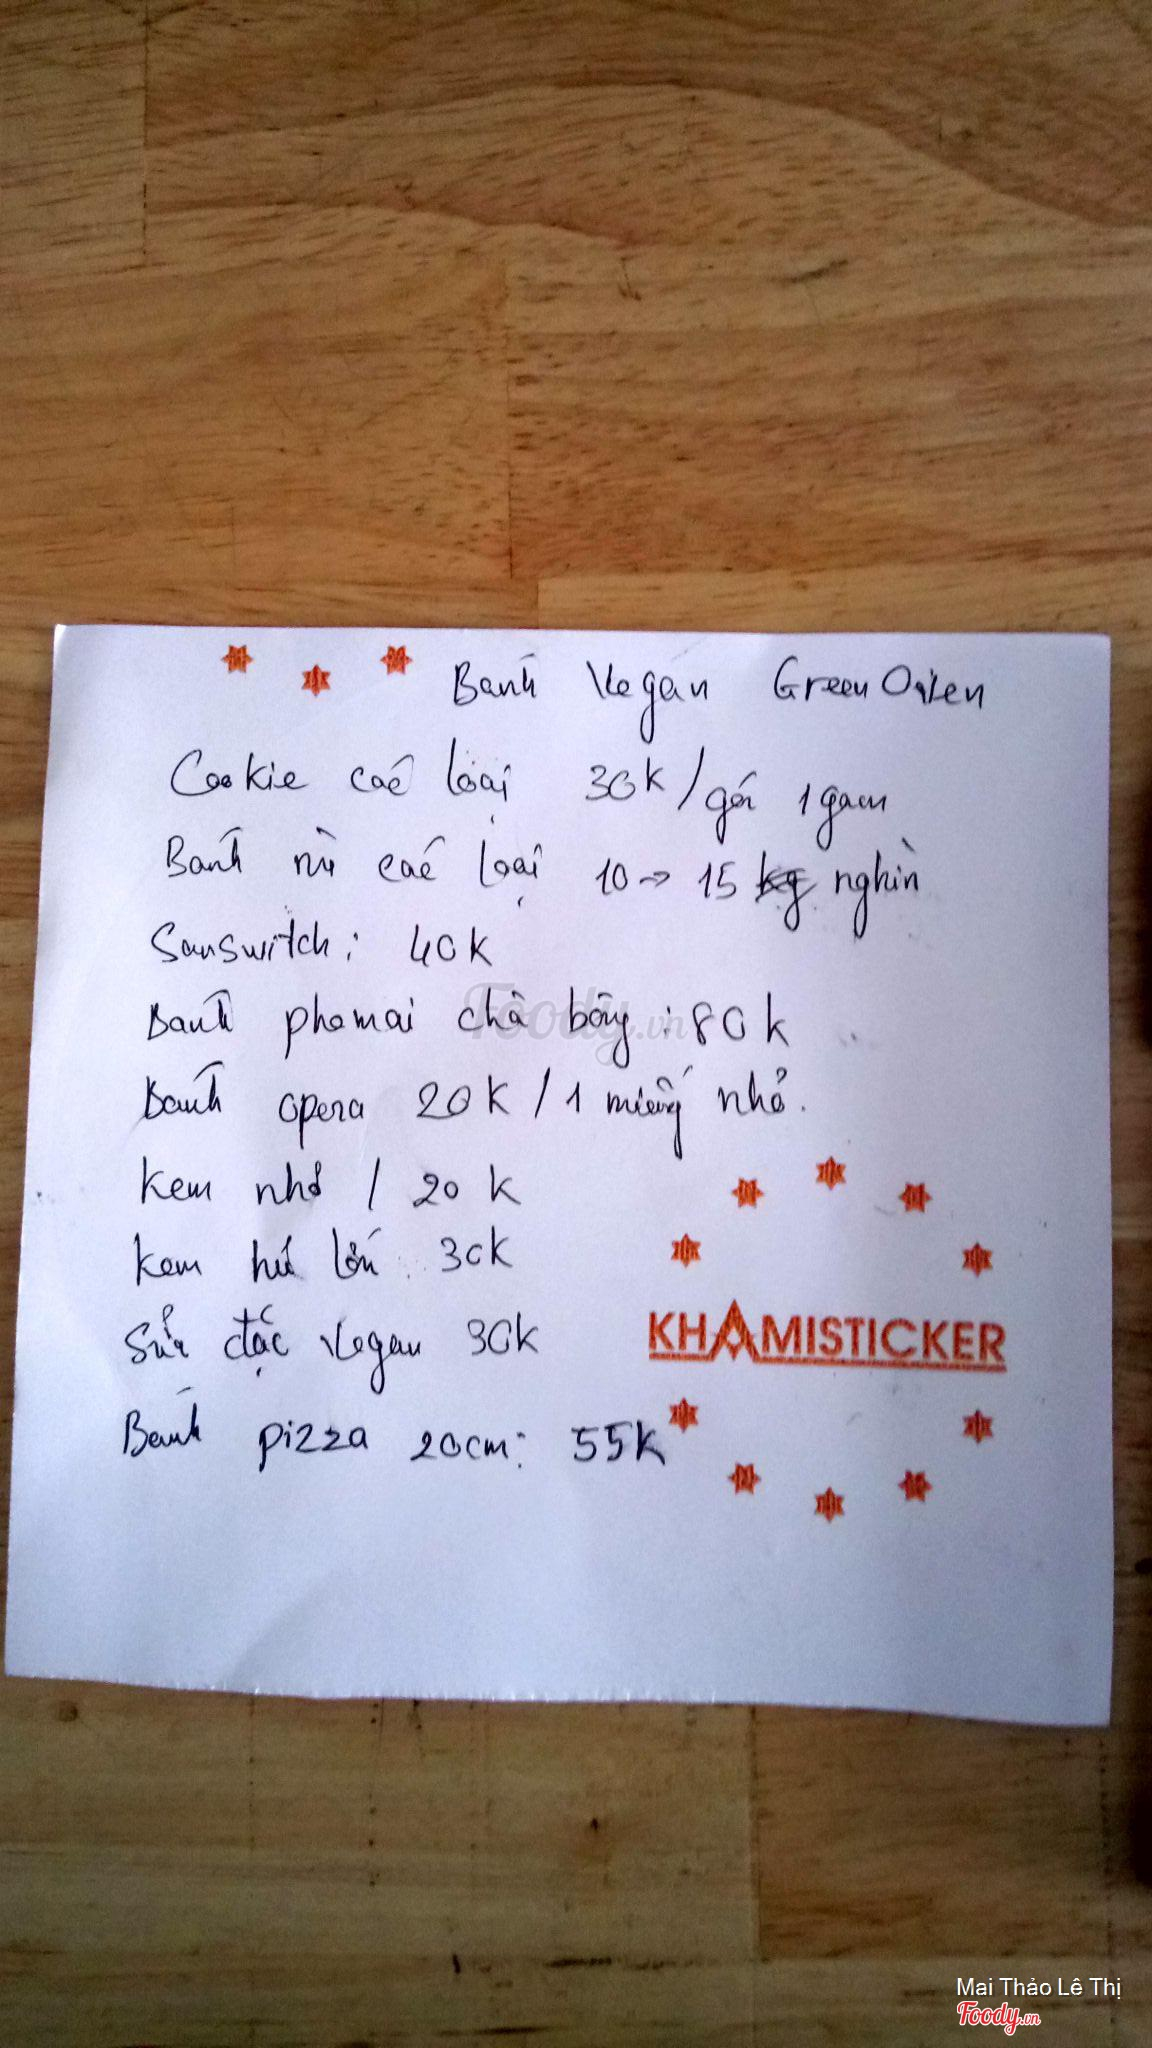 Bánh Vegan Green Oven
Cookie các loại 30k/gói 1 gam
Bánh mì các loại 10 -> 15 nghìn
Sanswitch: 40k
Bánh phomai chà bông: 80k
Bánh opera 20k / 1 miếng nhỏ.
Kem nhỏ / 20k
Kem hủ lớn: 30k
Sữa đặc Vegan 30k
Bánh pizza 20cm: 55k
KHAMISTICKER
Foody.vn
Mai Thảo Lê Thị
Foody.vn